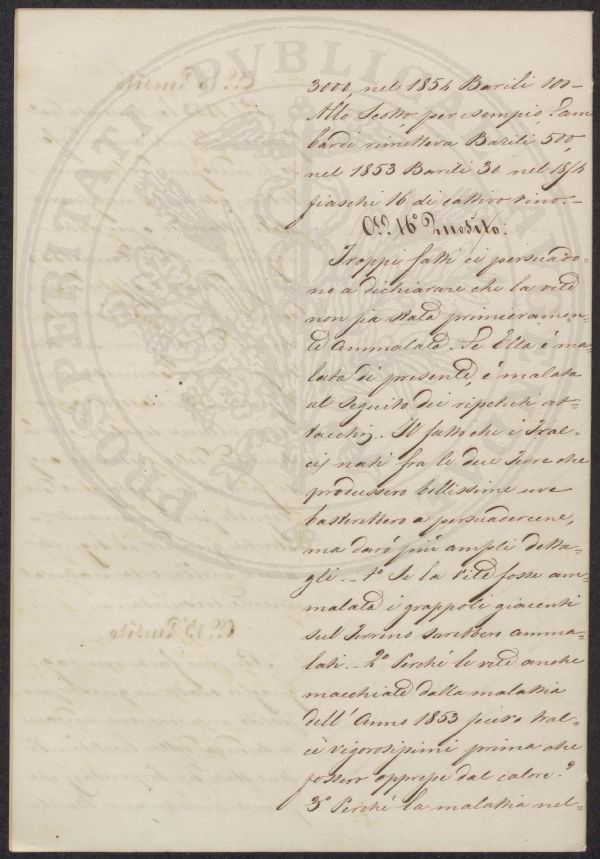 3000, nel 1854 Barili 100 -
Allo Scotto per esempio Lam
bardi rimetteva Barili 500,
nel 1853 Barili 30 nel 1854
fiaschi 16 di cattivo vino. -
Al 16° Quesito:
Troppi fatti ci persuado=
no a dichiarare che la vite
non sia stata primieramen=
te ammalata. Se Ella è ma=
lata di presente, è malata
al seguito dei ripetuti at=
tacchi. Il fatto che i tral=
ci nati fra le due Terre che
produssero bellissime uve
basterebbero a persuadercene,
ma darò più ampli detta=
gli. - 1° Se la Vite fosse am=
malata i grappoli giacenti
sul Terreno sarebbero amma=
lati. - 2° Perché le viti anche
macchiate dalla malattia
dell'Anno 1853 fecero tral=
ci vigorosissimi prima che
fossero oppresse dal calore?
3° Perché la malattia nel=
PROSPERITATI PVBLICAE